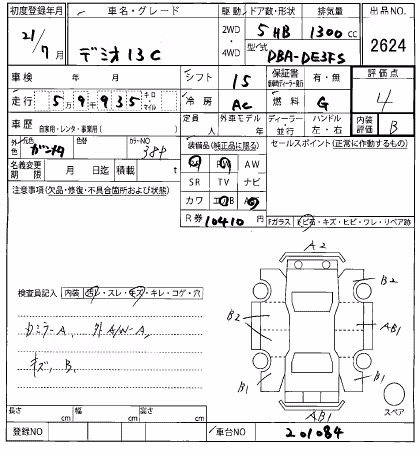 初度登録年月 車名・グレード 駆動 ドア数・形状 排気量 出品NO.
21/7月 デミオ13C 2WD・4WD 5HB 1300cc 2624
型式 DBA-DE3FS
車検 年 月 シフト 15 保証書 有・無 評価点
走行 5万9千935 キロ・マイル 冷房 AC 燃料 G 4
車歴 自家用・レンタ・事業用( ) 定員 人 外車モデル 年 ディーラー・並行 ハンドル 左・右 内装評価 B
外色 元色 色替 カラーNO 38P 装備品(純正品に限る) セールスポイント(正常に作動するもの)
名義変更期限 月 日迄 積載 t AW
SR TV ナビ
注意事項(欠品・修復・不具合箇所および状態) カワ
R券 10410円 Fガラス トビ石・キズ・ヒビ・ワレ・リペア跡
A2
B2
検査員記入 内装 汚レ・スレ・キズ・キレ・コゲ・穴
B2 AB1
カミラーA、 外A/W-A、
キズ、B、
B1 B1
スペア
AB1
長さ cm 幅 cm 高さ cm
登録NO 車台NO 201084